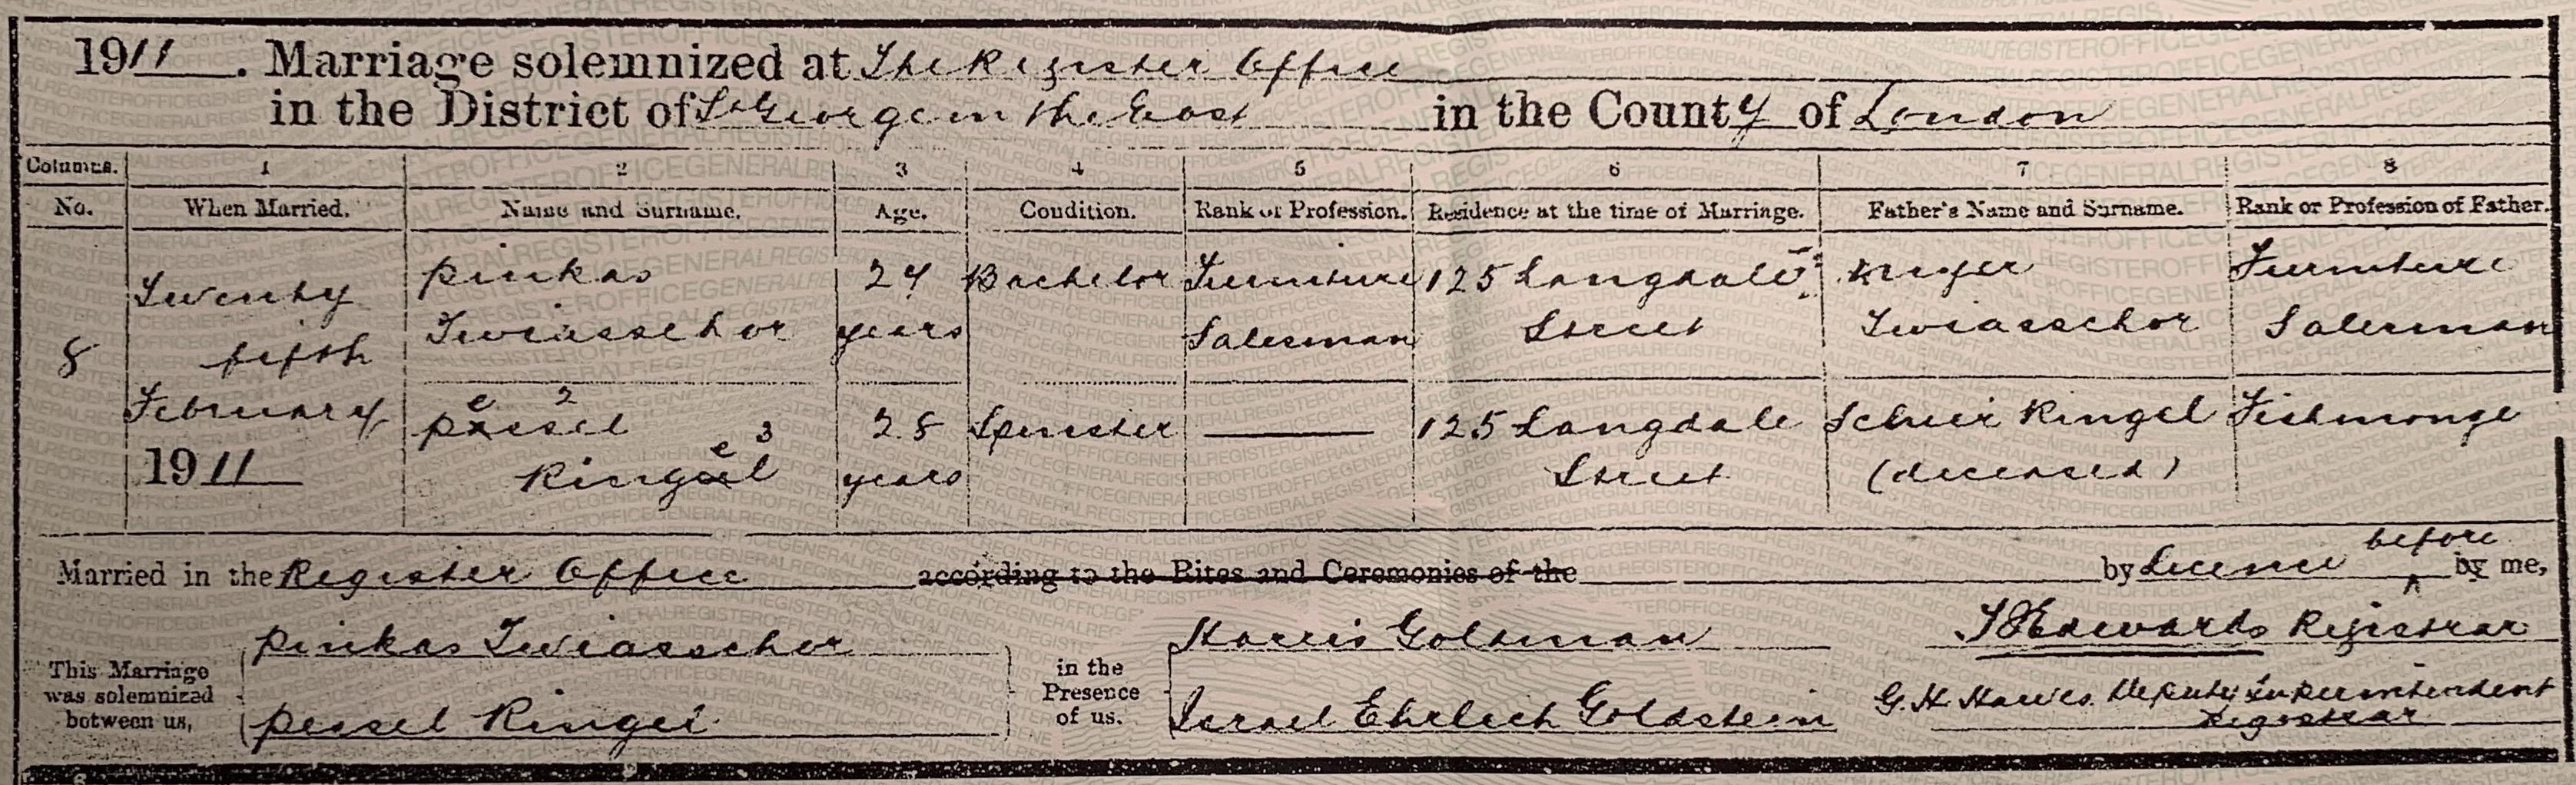 1911. Marriage solemnized at The Register Office
in the District of St George in the East in the County of London
Columns. 1 2 3 4 5 6 7 8
No. When Married. Name and Surname. Age. Condition. Rank or Profession. Residence at the time of Marriage. Father's Name and Surname. Rank or Profession of Father.
Twenty Pinkas 24 Bachelor Furniture 125 Langdale Furniture
fifth Twiasschor years Salesman Street Twiasschor Salesman
8
February Pessel 28 Spinster 125 Langdale Ringel Fishmonge
1911 Ringel years Street (deceased)
Married in the Register Office according to the Rites and Ceremonies of the by Licence before by me,
Pinkas Twiasschor Harris Goldman Edwards Registrar
This Marriage was solemnized between us, in the Presence of us.
Pessel Ringel Israel Ehrlich Goldstein G. H. Hawes Deputy Superintendent
Registrar